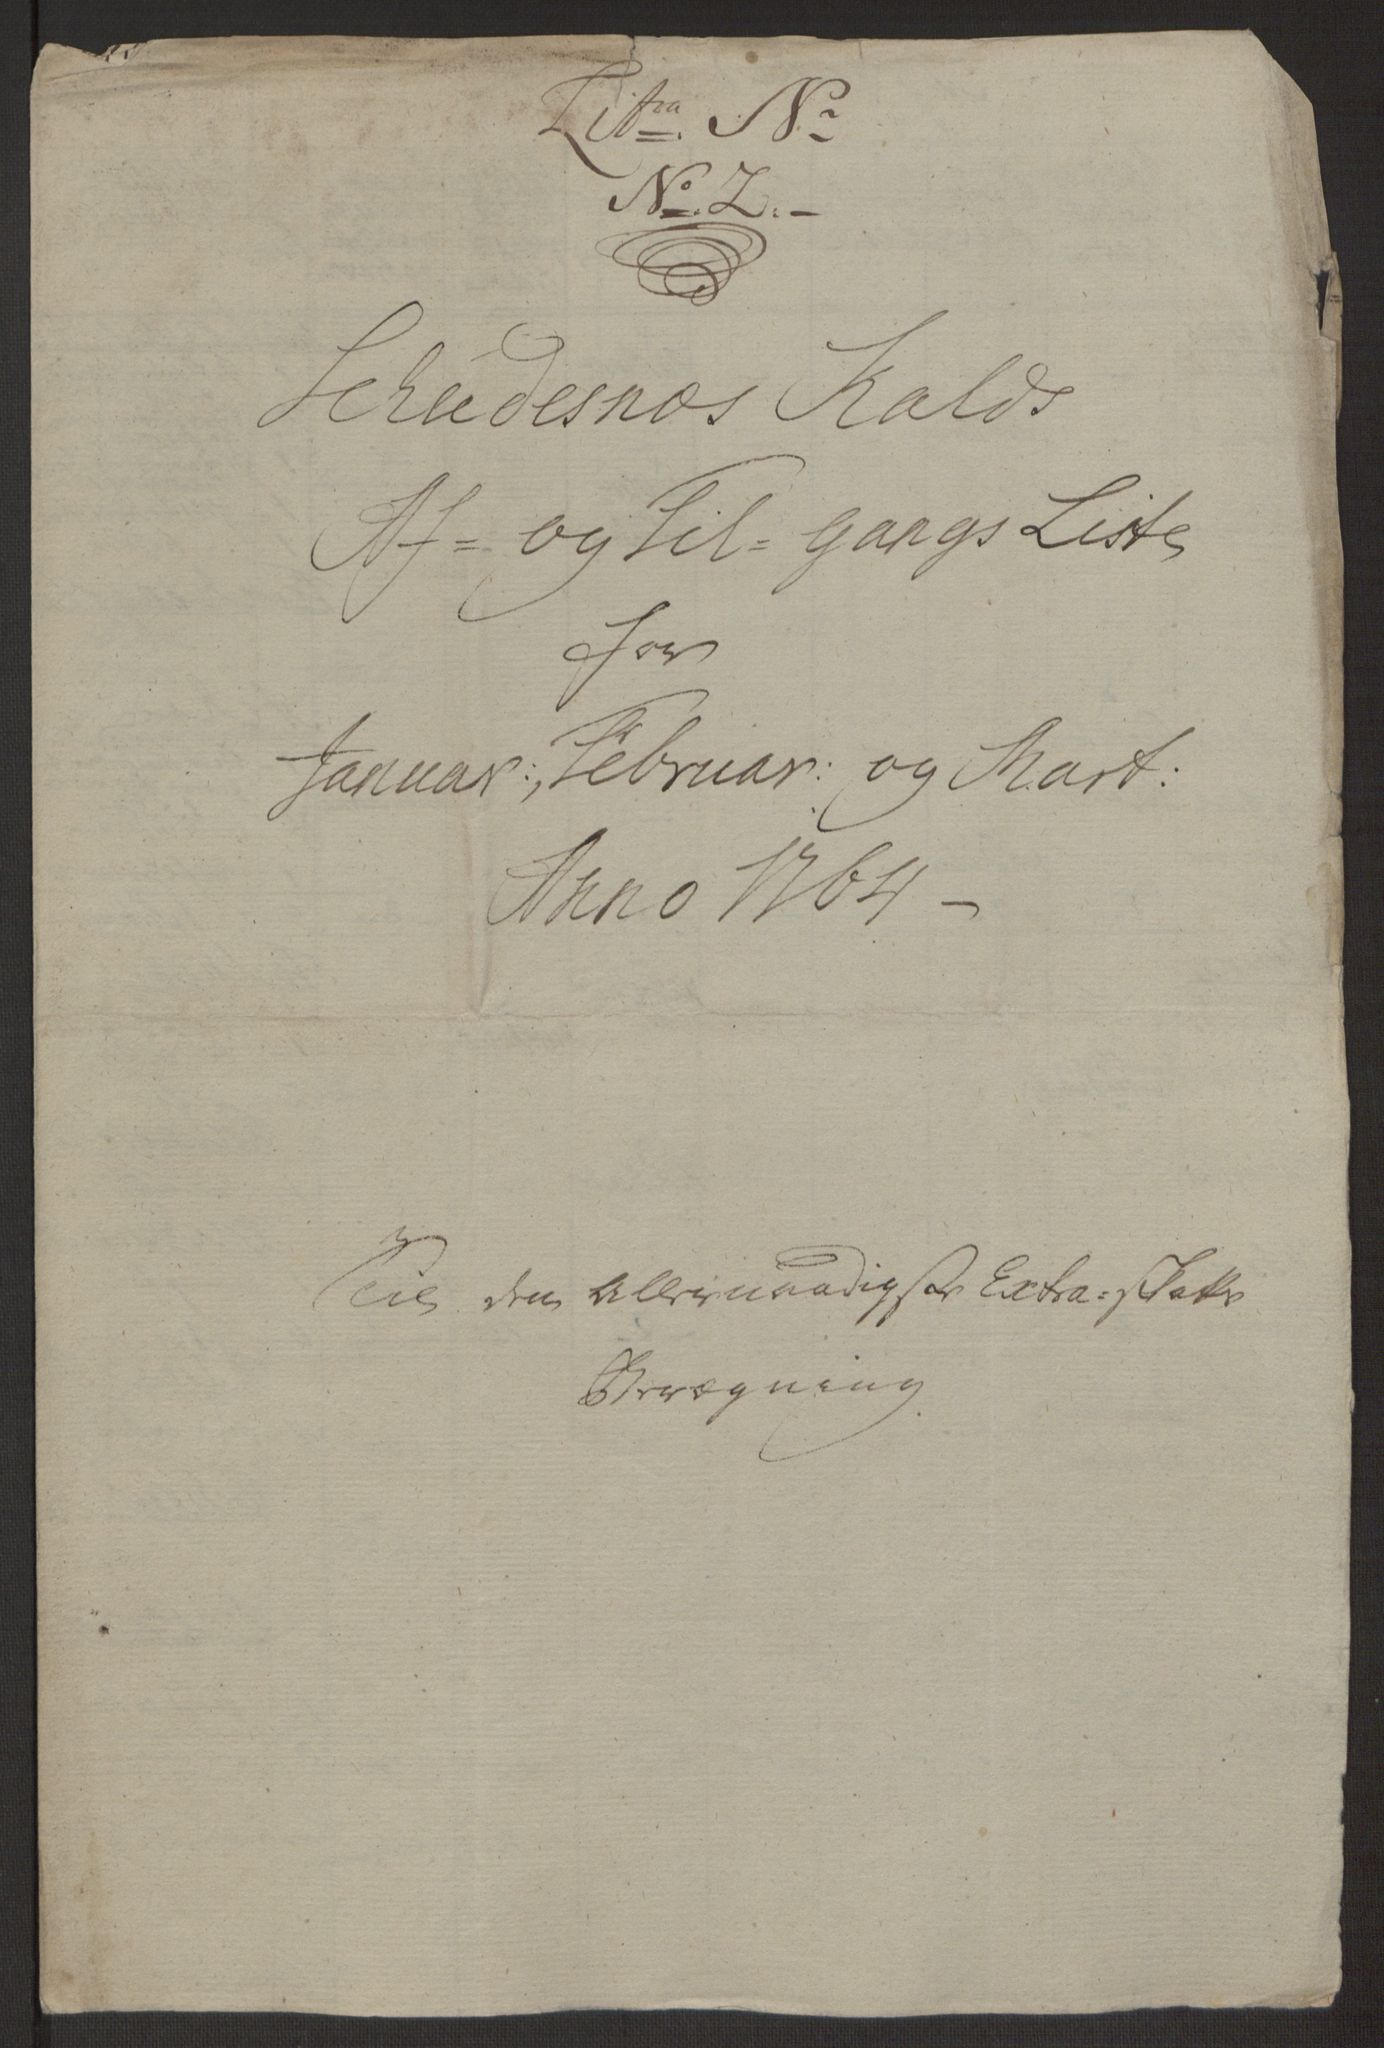 Litra. N:
No. 2. -
Schudesnæs Kalds
Af= og Til= gangs Liste
for
Januar:, Februar: og Mart:
Anno 1764 -
Til den Allernaadigste Extra=skatts
Beregning